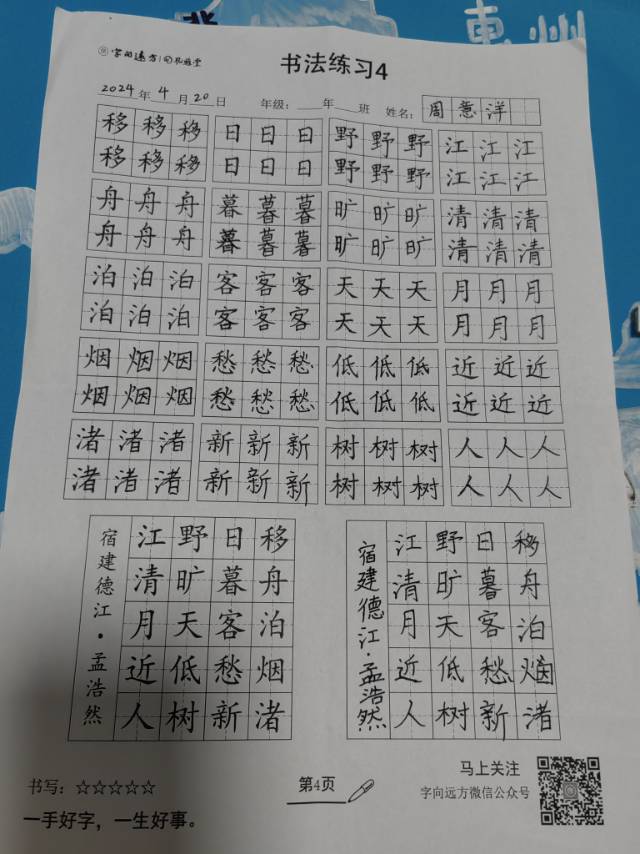 字向远方
书法练习4
2024年 4月 20日 年级：___年___班 姓名：周意洋
移移移 日日日 野野野 江江江
移移移 日日日 野野野 江江江
舟舟舟 暮暮暮 旷旷旷 清清清
舟舟舟 暮暮暮 旷旷旷 清清清
泊泊泊 客客客 天天天 月月月
泊泊泊 客客客 天天天 月月月
烟烟烟 愁愁愁 低低低 近近近
烟烟烟 愁愁愁 低低低 近近近
渚渚渚 新新新 树树树 人人人
渚渚渚 新新新 树树树 人人人
移舟泊烟渚
日暮客愁新
野旷天低树
江清月近人
宿建德江·孟浩然
移舟泊烟渚
日暮客愁新
野旷天低树
江清月近人
宿建德江·孟浩然
书写：☆☆☆☆☆
一手好字，一生好事。
第4页
马上关注
字向远方微信公众号
惠州